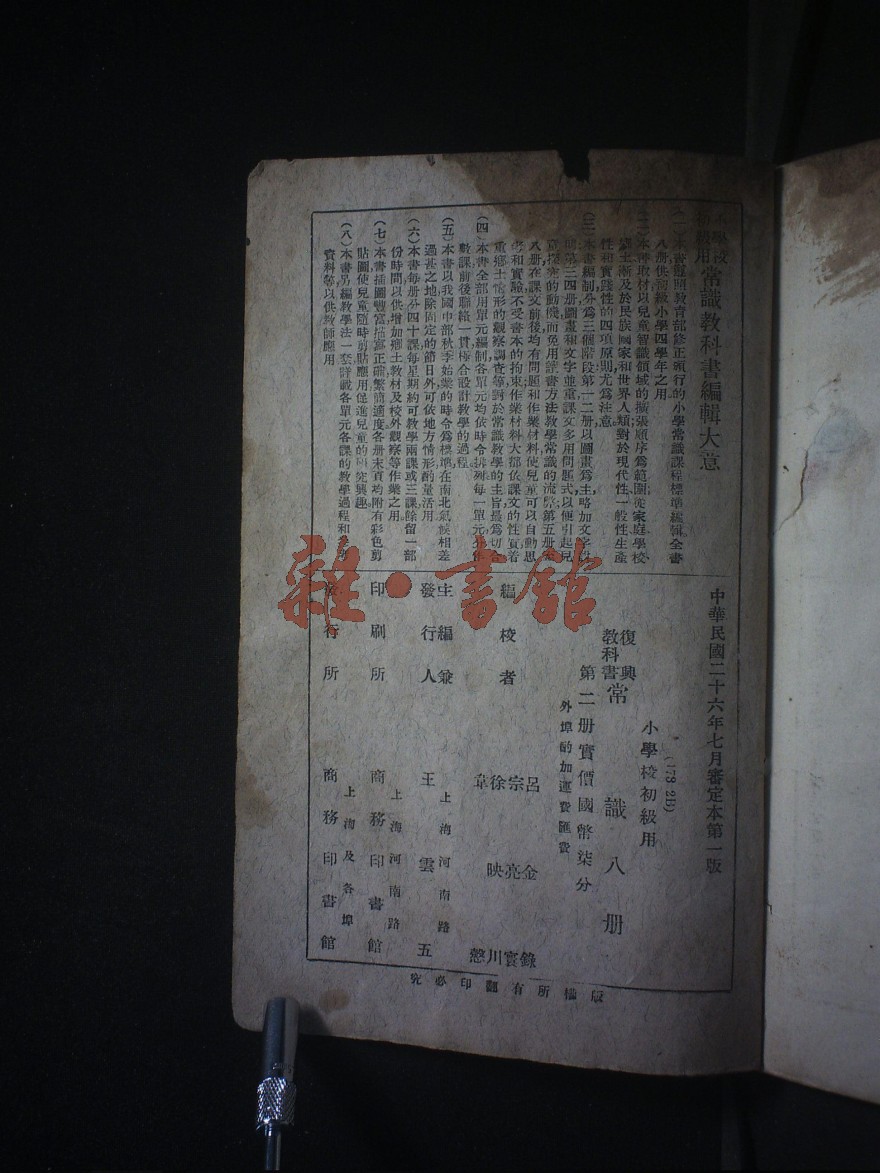 小學校
初級用
常識教科書編輯大意
(一)本書遵照教育部修正頒行的小學常識課程標準編輯全書
八册供初級小學四學年之用。
(二)本書取材以兒童智識領域的擴張順序爲範圍從家庭學校
鄉土漸及於民族國家和世界人類對於現代性一般性生產
性和實踐性的四項原則尤爲注意。
(三)本書編制分爲三個階段第一二册以圖畫爲主略加文字說
明第三四册圖畫和文字並重課文多用問題式以便引起兒
童探究的動機而免用讀書方法教學常識的流弊第五册至
八册在課文前後均有問題和作業材料使兒童可以自動思
考和實驗不受書本的拘束作業材料大都依課文的性質着
重鄉土情形的觀察調查等對於常識教學的主旨最爲切合
(四)本書全部用單元編制各單元均依時令排列每一單元
數課前後聯絡一貫極合設計教學的過程。
(五)本書以我國中部秋季始業的時令爲標準在南北氣候相差
過甚之地除固定的節日外可依地方情形酌量活用
(六)本書每册分四十課每星期約可教學兩課或三課餘留一部
份時間以供增加鄉土教材及校外觀察等作業之用。
(七)本書插圖豐富描寫正確繁簡適度各册末頁均附有彩色剪
貼圖使兒童隨時剪貼應用促進兒童的研究興趣。
(八)本書另編教學法一套詳載各單元各課的教學過程和
資料等以供教師應用
中華民國二十六年七月審定本第一版
(178 2B)
小學校初級用
復興
教科書
常識八册
第二册實價國幣柒分
外埠酌加運費匯費
編校者
呂金錄
宗亮寰
徐映川
韋慤
主編兼
發行人
上海河南路
王雲五
印刷所
上海河南路
商務印書館
發行所
上海及各埠
商務印書館
版權所有翻印必究
雜·書館